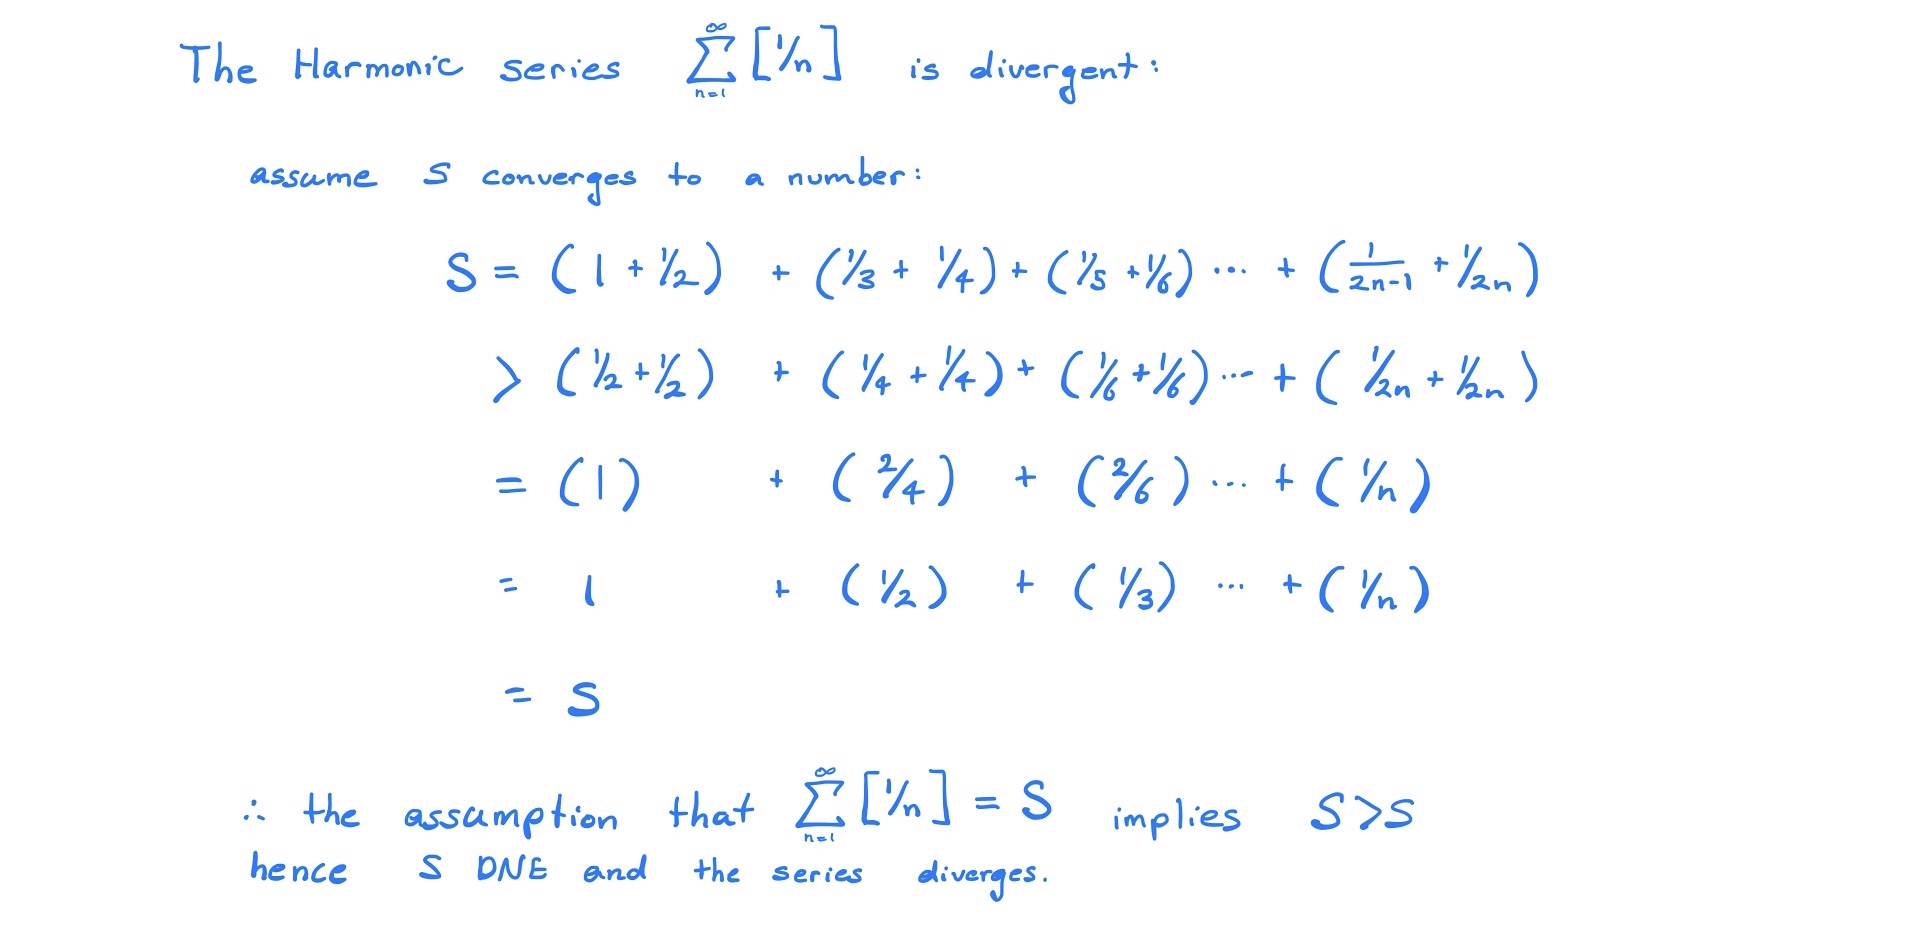 The Harmonic series ∞ Σ n=1 [1/n] is divergent:
assume S converges to a number:
S = (1 + 1/2) + (1/3 + 1/4) + (1/5 + 1/6) ... + (1/2n-1 + 1/2n)
> (1/2 + 1/2) + (1/4 + 1/4) + (1/6 + 1/6) ... + (1/2n + 1/2n)
= (1) + (2/4) + (2/6) ... + (1/n)
= 1 + (1/2) + (1/3) ... + (1/n)
= S
∴ the assumption that ∞ Σ n=1 [1/n] = S implies S>S
hence S DNE and the series diverges.